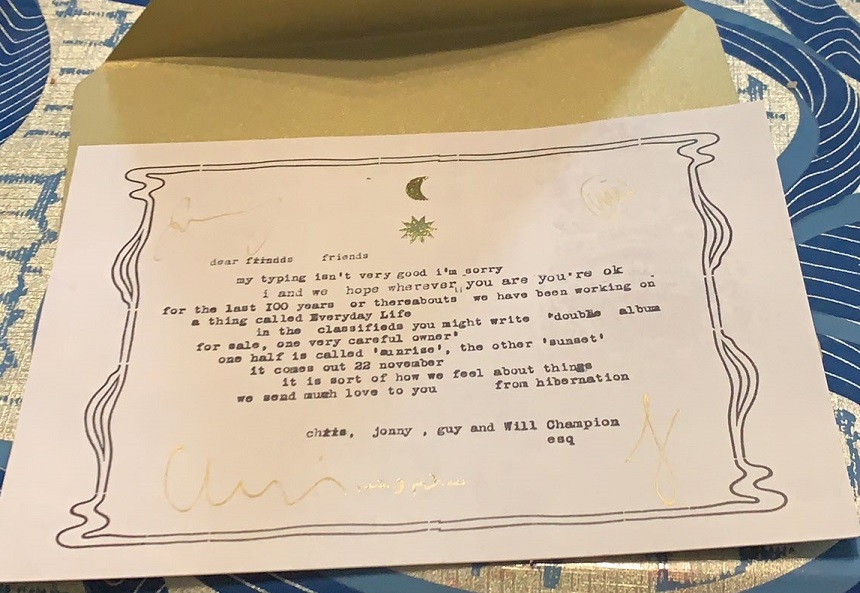 dear friends friends
my typing isn't very good i'm sorry
i and we hope wherever you are you're ok
for the last I00 years or thereabouts we have been working on
a thing called Everyday Life
in the classifieds you might write 'double album
for sale, one very careful owner'
one half is called 'sunrise', the other 'sunset'
it comes out 22 november
it is sort of how we feel about things
we send much love to you from hibernation
chris, jonny , guy and Will Champion
esq